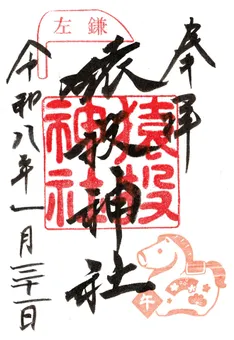 奉拝
左鎌
猿投神社
猿投神社
令和八年一月三十一日
午